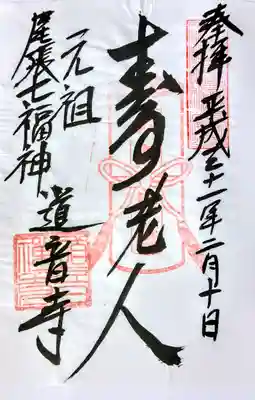 奉拝 平成三十一年二月十日
寿老人
元祖
尾張七福神 道音寺